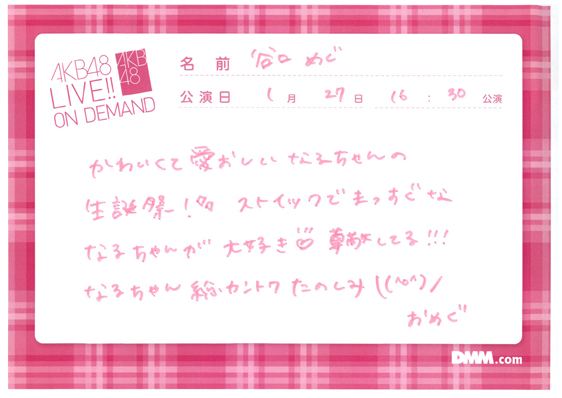 AKB48
LIVE!!
ON DEMAND
AKB
48
名 前 谷口 めぐ
公演日 1 月 27 日 16 : 30 公演
かわいくて愛おしい なるちゃんの
生誕祭! ストイックでまっすぐな
なるちゃんが 大好き♡ 尊敬してる!!!
なるちゃん 総カントク たのしみ \(^o^)/
おめぐ
DMM.com